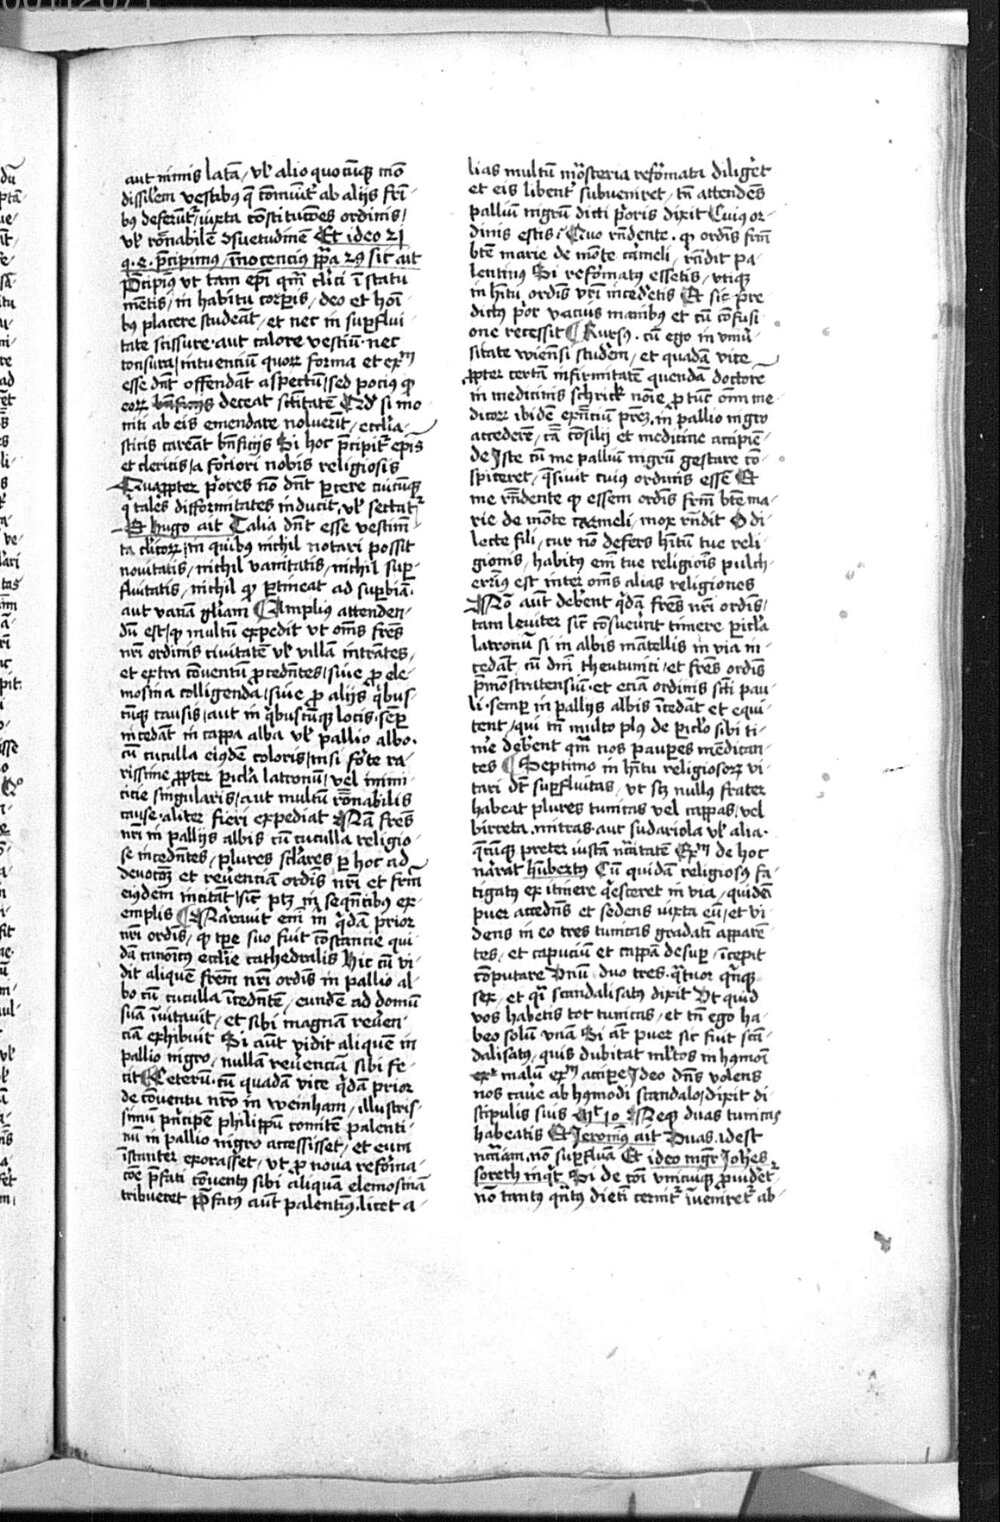 aut nimis latā / vl' alio quocūqꝫ mo
dissilem vestibꝰ q̄ cōmuīt' ab alijs fri-
bꝰ deferūt' / iuxta cōstitucōes ordinis /
vl' rōnabilē ɔsuetudinē Et ideo 21
q. 4. p̄cipimꝰ / īnocencius pp̄a 29 sic ait
p̄cipiꝰ vt tam ep̄i qm̄ cl'ici ī statu
mētis / in habitu corp̄is / deo et hoī
bꝰ placere studeāt / et nec in sup̄flui
tate scissure aut calore vestiū nec
tonsura / intuenciū quoꝝ forma et exm̄
esse dn̄t offendāt aspectū / sed pociꝰ qd
eoꝝ deceat sc̄titatē Qd' si mo
niti ab eis emendare noluerīt / eccl'ia-
sticis careāt bn̄ficijs Si hoc p̄cipit' ep̄is
et clericis / a forciori nobis religiosis
Quapp̄ter p̄ores nō dn̄t p̄cere cuicūqꝫ
q' tales difformitates inducit / vl' sectat'
Et hugo ait Talia dn̄t esse vestim̄
ta cl'icoꝝ / in quibꝰ nichil notari possit
novitatis / nichil vanitatis / nichil sup̄-
fluitatis / nichil qd p̄tineat ad sup̄biā
aut vanā gl'iam Ampliꝰ attenden-
dū est / qd multū expedit vt om̄s fres
nr̄i ordinis civitatē vl' villā intrātes /
et extra cōventū p̄cedn̄tes / siue p̄ ele-
mosina colligenda / siue p̄ alijs q'bus
cūqꝫ causis / aut in q'bustūqꝫ locis sēp
incedāt in cappa alba vl' pallio albo
cū cuculla eiꝰdē coloris / nisi forte ra-
rissime pp̄ter picl'a latronū / vel inimi-
cicie singularis / aut multū rōnabilis
cause aliter fieri expediat Nā fres
nr̄i in pallijs albis cū cuculla religio-
se incedn̄tes / plures sc'lares p hoc ad
devocōꝫ et reu'enciā ordis nr̄i et frm̄
eiꝰdem incitāt / sic ptꝫ in seqn̄tibꝰ ex-
emplis Narravit em̄ in q'dā prior
nr̄i ordis / qd tp̄e suo fuit cōstancie qui
dā canonicꝰ eccl'ie cathedralis Hic cū vi-
dit aliquē frem̄ nr̄i ordis in pallio al-
bo cū cuculla īcedn̄te / eundē ad domū
suā īuitauit / et sibi magnā reu'en-
ciā exhibuit Si aūt vidit aliquē in
pallio nigro / nullā reu'enciā sibi fe-
cit Ceterū cū quadā vice q'dā prior
de cōventu nr̄o in weinham / illustris-
simū p'ncipē philippū comitē palenti-
nū in pallio nigro accessisset / et eum
īstanter exorasset / vt p̄ nova reforma-
cōe p̄fati cōventꝰ sibi aliquā elemosinā
tribueret P̄fatꝰ aūt palentinꝰ licet a-
lias multū mōsteria reformata diligeret
et eis libent' subueniret / tn̄ attendēs
palliū nigrū dicti p̄oris dixit Cuiꝰ or-
dinis estis / Quo rn̄dente qd ordis frm̄
bt̄e marie de mōte cārmeli / rn̄dit pa-
lentinꝰ Si reformatꝰ essetis / vtiqꝫ
in hītu ordis vr̄i incederetis Et sic p̄re
dictꝰ p̄or vacuꝰ manibꝰ et cū cōfusi
one recessit Rursꝰ cū ego in vniu'-
sitate wien̄si studerem / et quadā vice
pp̄ter certā infirmitatē quendā doctorē
in medicinis schrick noīe p tūc om̄i me-
dicoꝝ ibidē exn̄ciū p̄rez in pallio nigro
accederē / cā cōsilij et medicine accipiē-
de Iste cū me palliū nigrū gestare cō-
spiceret / q'siuit cuiꝰ ordinis essē Et
me rn̄dente qd essem ordis frm̄ bt̄e ma-
rie de mōte carmeli / mox rn̄dit O di-
lecte fili / cur nō defers hītū tue reli-
gionis / habitꝰ em̄ tue religiōis pulch-
erimꝰ est inter om̄s alias religiones
Nō aūt debent q'dā fres nr̄i ordis /
tam leuiter sic cōsueuīt timere picl'a
latronū si in albis mātellis in via in-
cedāt cū dn̄i theutunici / et fres ordis
p̄mōstratensiū et eciā ordinis sc̄ti pau-
li semp in pallijs albis īcedāt et equi-
tent / qui tn̄ multo plꝰ de picl'o sibi ti-
m'e deberēt qm̄ nos paup̄es mēdican-
tes Septimo in hītu religiosoꝝ vi-
tari dꝫ sup̄fluitas / vt sꝫ nullꝰ frater
habeat plures tunicas vel cappas vel
birreta mitras aut sudariola vl' alia
q̄cūqꝫ preter iustā n̄citatē Exm̄ de hoc
narrat hūbertꝰ Cū quidā religiosꝰ fa-
tigatꝰ ex itinere q'esceret in via / quidā
puer accedn̄s et sedens iuxta eū / et vi-
dens in eo tres tunicas gradati apparē-
tes / et capuciū et cappā desup / īcepit
cōputare Vnū duo tres q'tuor q̄nqꝫ
sex / et q'si scandalisatꝰ dixit Vt quid
vos habetis tot tunicas / et tn̄ ego ha-
beo solū vnā Si aūt puer sic fuit scā-
dalisatꝰ / quis dubitat ml'tos in hꝰmōi
malū exm̄ accipe Ideo dn̄s volens
nos cau'e ab hꝰmodi scandalo / dixit di-
scipulis suis Mt 10 Neqꝫ duas tunicas
habeatis Et Ieronimꝰ ait Duas / idest
nccāriam / nō sup̄fluā Et ideo mgr Ioh̄es
soreth inq't Si de cōi vnicuiqꝫ p̄uidet'
nō tantꝰ q̄ntꝰ dietī cernit' īueniret' ab-